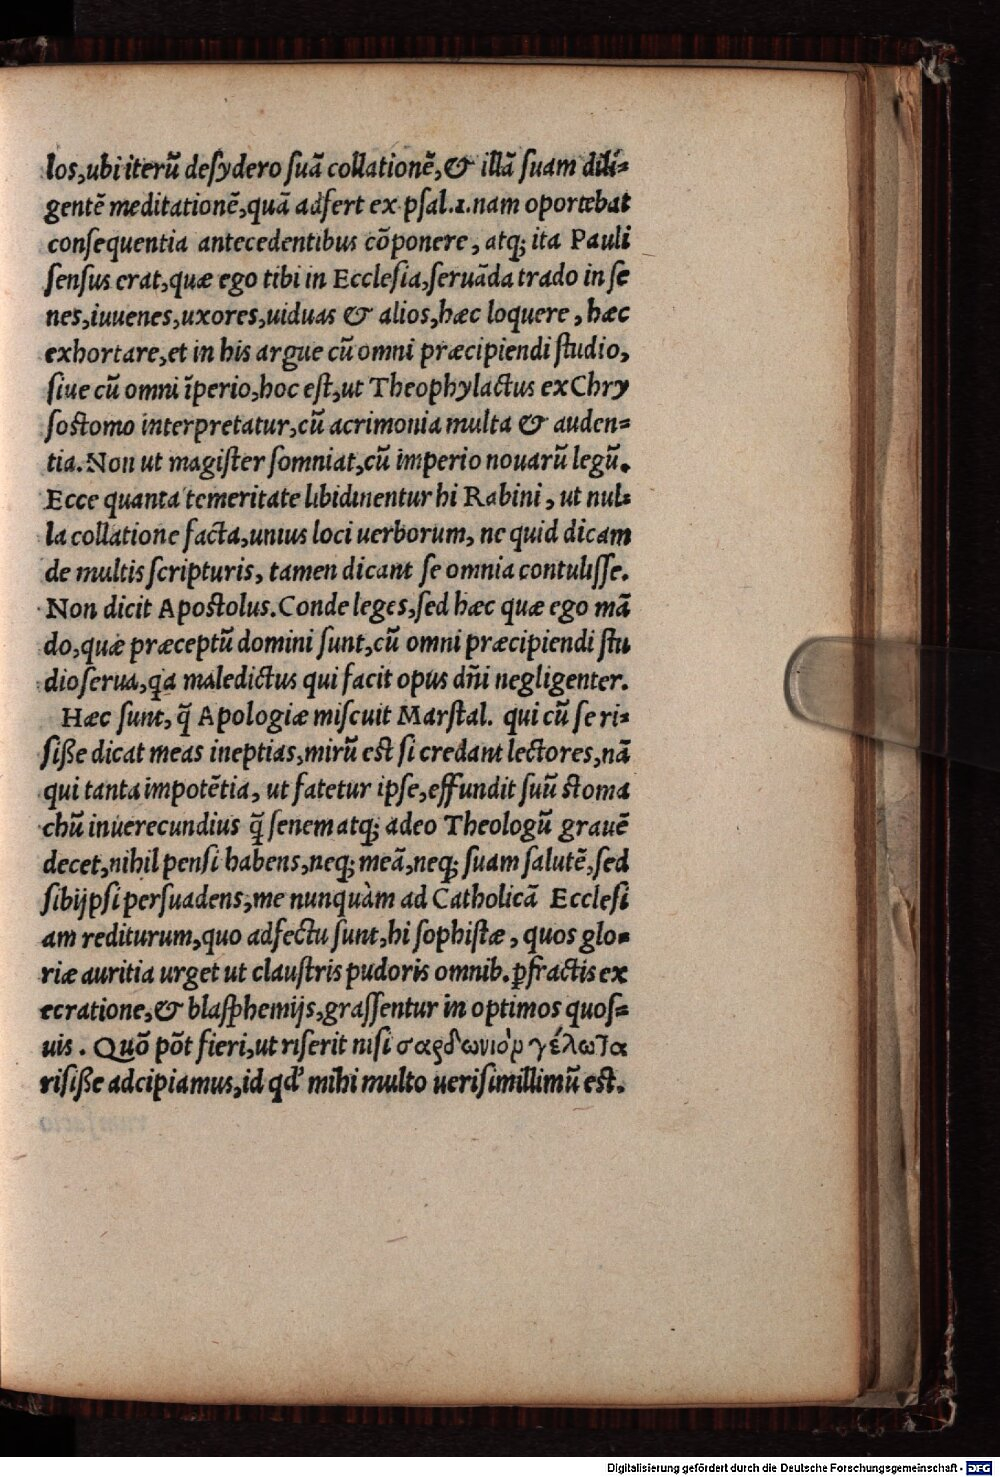 los,ubi iterũ desydero suã collationẽ,& illã suam dili=
gentẽ meditationẽ,quã adfert ex psal.1.nam oportebat
consequentia antecedentibus cõponere, atq; ita Pauli
sensus erat,quæ ego tibi in Ecclesia,seruãda trado in se
nes,iuuenes,uxores,uiduas & alios,hæc loquere, hæc
exhortare,et in his argue cũ omni præcipiendi studio,
siue cũ omni ĩperio,hoc est,ut Theophylactus ex Chry
sostomo interpretatur,cũ acrimonia multa & auden=
tia. Non ut magister somniat,cũ imperio nouarũ legũ.
Ecce quanta temeritate libidinentur hi Rabini, ut nul=
la collatione facta,unius loci uerborum, ne quid dicam
de multis scripturis, tamen dicant se omnia contulisse.
Non dicit Apostolus. Conde leges,sed hæc quæ ego mã
do,quæ præceptũ domini sunt,cũ omni præcipiendi stu
dio serua,q̃a maledictus qui facit opus dñi negligenter.
Hæc sunt, q̃ Apologiæ miscuit Marstal. qui cũ se ri=
siße dicat meas ineptias,mirũ est si credant lectores,nã
qui tanta impotẽtia, ut fatetur ipse,effundit suũ stoma
chũ inuerecundius q̃ senem atq; adeo Theologũ grauẽ
decet,nihil pensi habens,neq; meã,neq; suam salutẽ,sed
sibijpsi persuadens,me nunquàm ad Catholicã Ecclesi
am rediturum,quo adfectu sunt,hi sophistæ, quos glo=
riæ auritia urget ut claustris pudoris omnib. ꝑfractis ex
ecratione,& blasphemijs,grassentur in optimos quos=
uis. Quõ põt fieri,ut riserit nisi σαρδωνιὸρ γέλωῖα
risiße adcipiamus,id qd' mihi multo uerisimillimũ est.
Digitalisierung gefördert durch die Deutsche Forschungsgemeinschaft - DFG